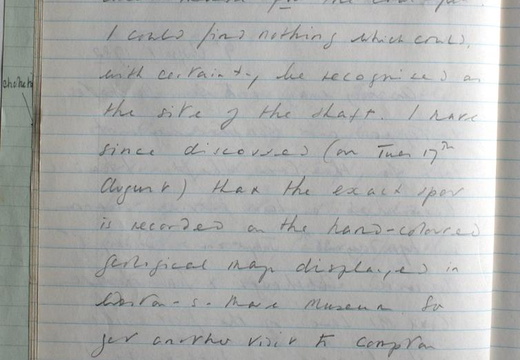 I could find nothing which could,
with certainty, be recognised as
the site of the shaft. I have
since discovered (on Tues 17th
August) that the exact spot
is recorded on the hand-coloured
geological map displayed in
Weston-s-Mare Museum. So
yet another visit to Compton